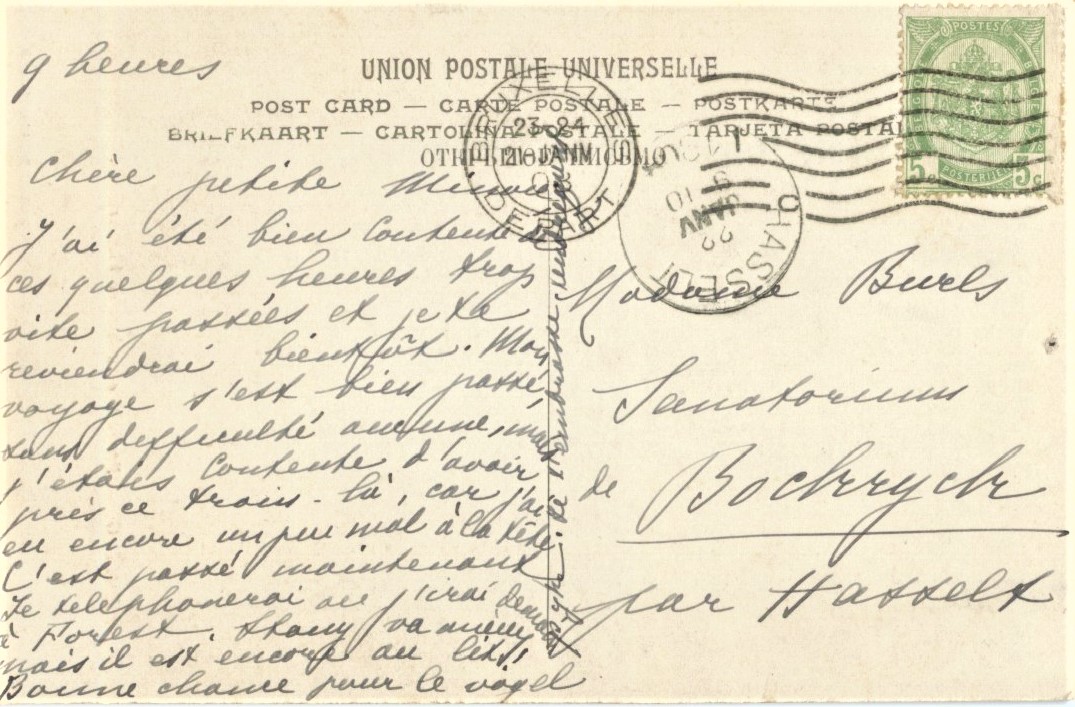 9 heures
UNION POSTALE UNIVERSELLE
POST CARD — CARTE POSTALE — POSTKARTE
BRIEFKAART — CARTOLINA POSTALE — TARJETA POSTAL
BRUXELLES
23-24
21 JANV
DEPART
HASSELT
22
JANV
10
POSTES
5c POSTERIJEN 5c
Chère petite Minou
J'ai été bien contente
ces quelques heures trop
vite passées et je te
reviendrai bientôt. Mon
voyage s'est bien passé
sans difficulté aucune, mais
j'étais contente d'avoir
pris ce train-là, car j'ai
eu encore un peu mal à la tête.
C'est passé maintenant
Je telephonerai ou j'irai demain
à Forest. va mieux
mais il est encore au lit,
Bonne chance pour le vogel
Je t'embrasse
Madame Burls
Sanatorium
de Bockryck
par Hasselt